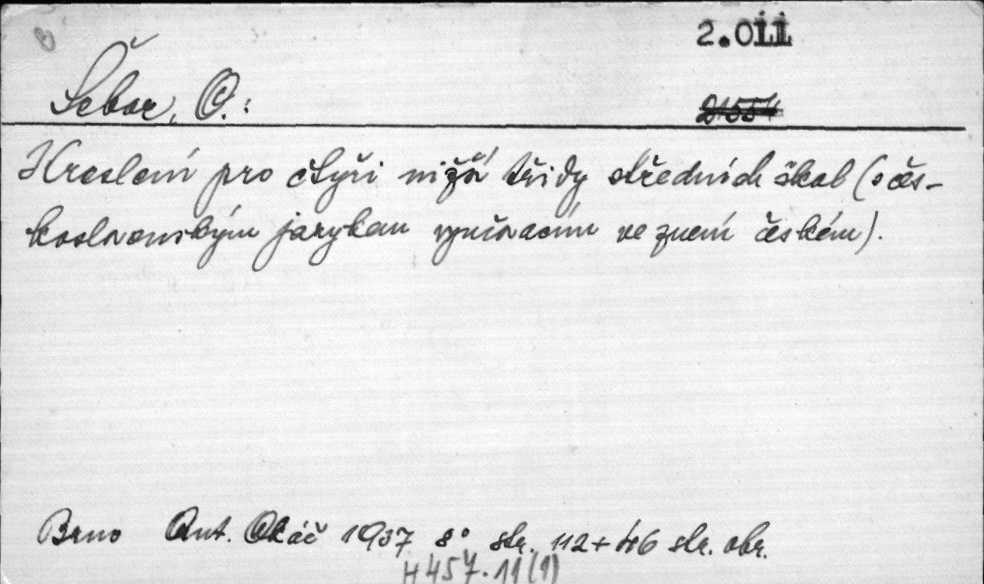 2.011
Šebor, O.:
21554
Kreslení pro čtyři nižší třídy středních škol (s čes-
koslovenským jazykem vyučovacím ve znění českém).
Brno Ant. Okáč 1937 8° str. 112+46 str. obr.
H 457.11(1)